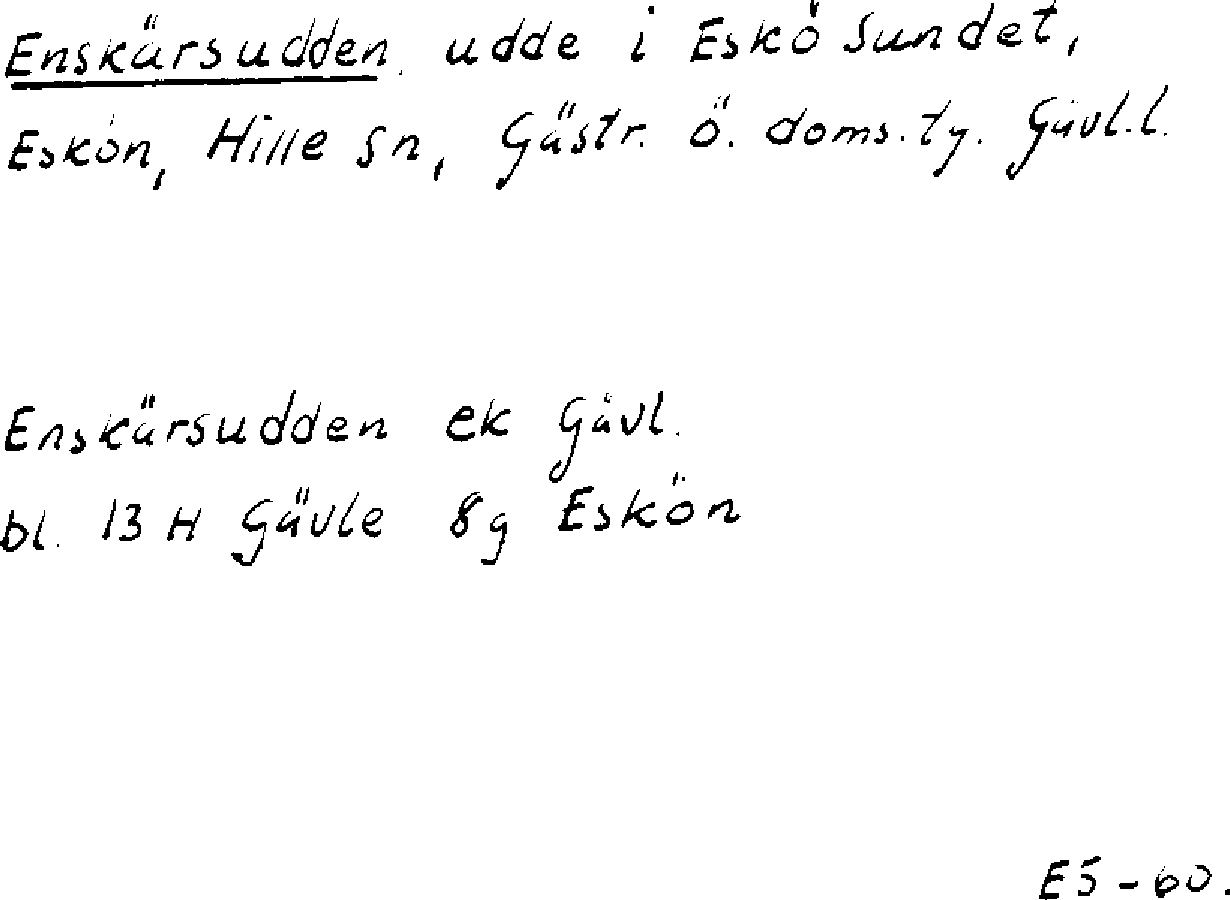 Enskärsudden, udde i Eskö Sundet,
Eskön, Hille sn, Gästr. ö. doms. ty. Gävl.l.
Enskärsudden ek Gävl.
bl. 13 H Gävle 8g Eskön
ES-60.